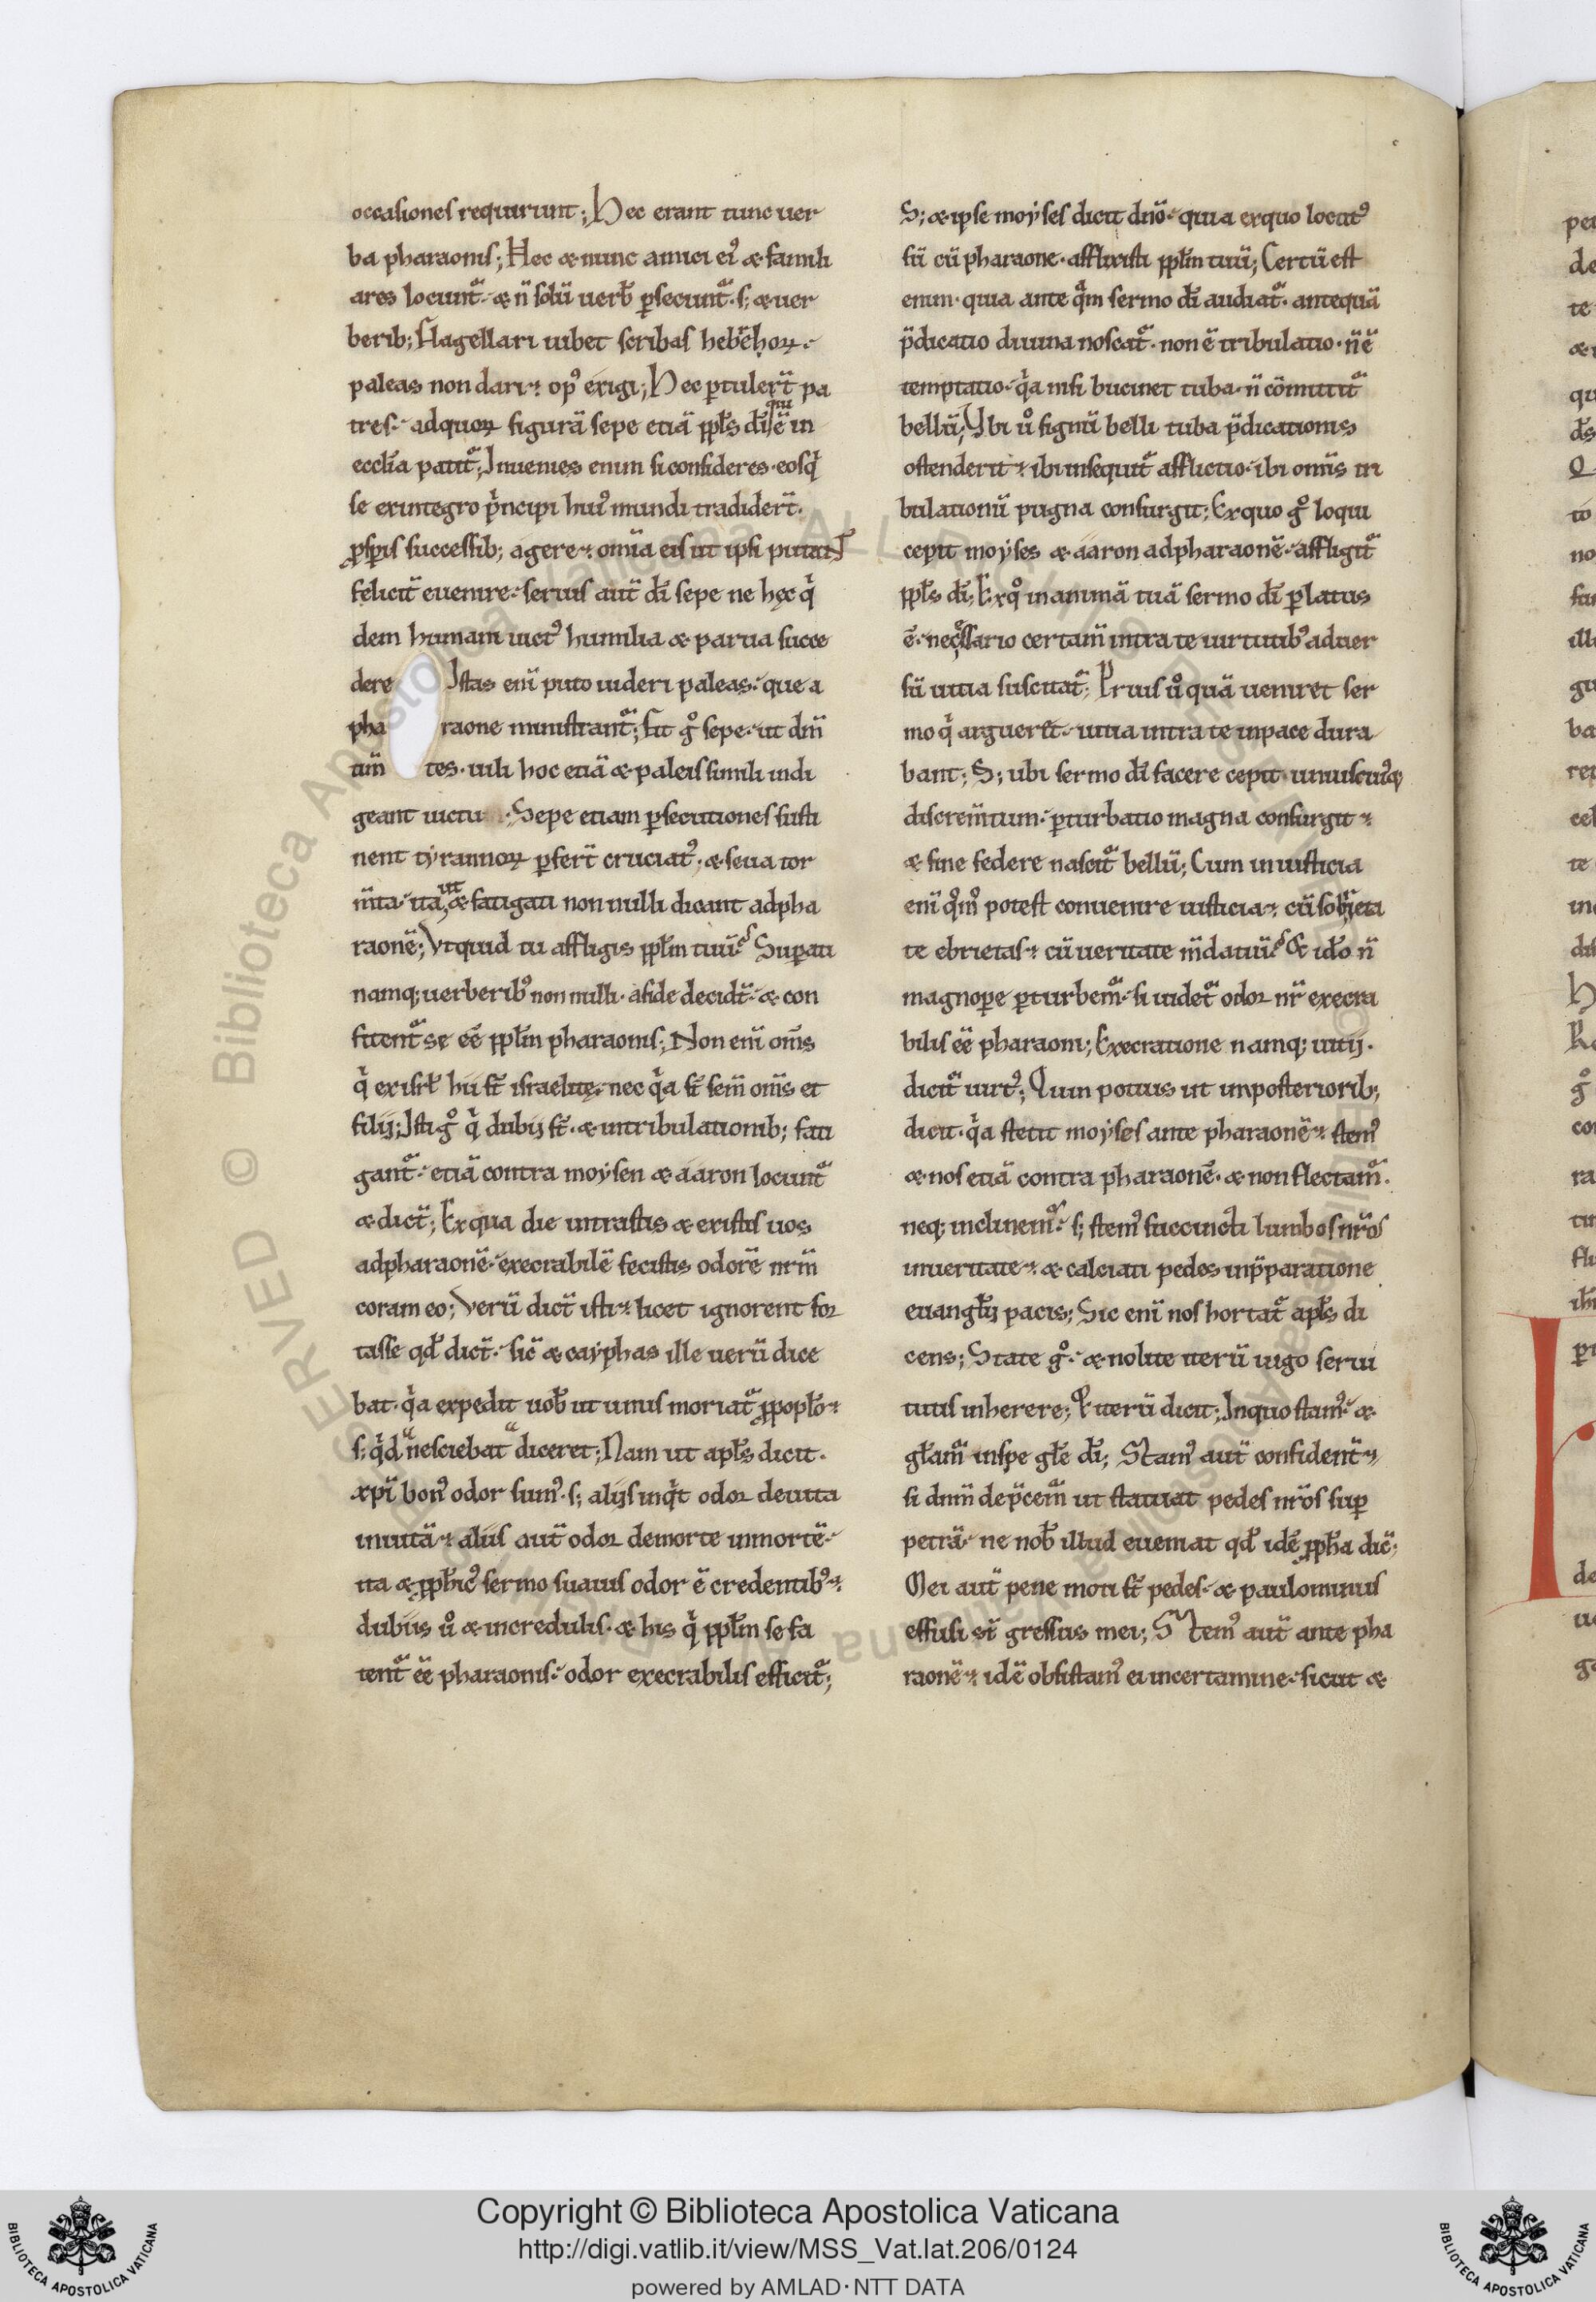 occasiones requirunt; Hec erant tunc uer
ba pharaonis; Hec & nunc amici ei᾽ & famili
ares locunt᷑· & n̄ solū uerb̄ ꝑsecunt᷑· s; & uer
berib; flagellari iubet scribas hebreoꝝ·
paleas non dari· op᾽ exigi; Hec ꝑtulert̄ pa
tres· ad quoꝝ figurā sepe etiā ppl̄s dī qui ē in
eccl̄ia patit᷑; Inuenies enim si consideres· eos qͥ
se ex integro pͥncipi hui᾽ mundi tradidert̄·
ꝓsꝑis successib; agere· om̄ia eis ut ipsi putant
felicit̄ euenire· seruis aut̄ dī sepe ne hęc qͥ
dem humani uict᾽ humilia & parua succe
dere Istas enī puto uideri paleas· que a
pha raone ministrant᷑; fit gͦ sepe· ut dn̄m
tim̄ tes· uili hoc etiā & paleis simili indi
geant uictu· Sepe etiam ꝑsecutiones susti
nent tyrannoꝝ ꝑfert̄ cruciat᾽· & seua tor
m̄ta· ita, ut & fatigati non nulli dicant ad pha
raonē; Vt quid tu affligis ppl̄m tuū; Suꝑati
namq; uerberib᾽ non nulli· a fide decidt̄· & con
fitent᷑ se eē ppl̄m pharaonis; Non enī om̄s
qͥ ex isrl̄ hii st̄ israelitę· nec qͥa st̄ sem̄ om̄s et
filij; Isti gͦ qͥ dubij st̄· & in tribulationib; fati
gant᷑· etiā contra moysen & aaron locunt᷑
& dict̄; Ex qua die intrastis & existis uos
ad pharaonē· execrabilē fecistis odorē nr̄m
coram eo; Verū dict̄ isti· licet ignorent for
tasse qd̄ dict̄· sic̄ & cayphas ille uerū dice
bat· qͥa expedit uob̄ ut unus moriat᷑ ꝓ popl̄o·
s; qͥd nesciebat diceret; Nam ut apl̄s dicit·
xp̄i bon᾽ odor sum᾽· s; alijs inqͥt odor de uita
in uitā· aliis aut̄ odor de morte in mortē·
ita & ꝓph̄ic᾽ sermo suauis odor ē credentib᾽·
dubiis uͦ & incredulis· & his qͥ ppl̄m se fa
tent᷑ eē pharaonis· odor execrabilis efficit᷑;
S; & ipse moyses dicit dn̄o· quia ex quo locut᾽
sū cū pharaone· afflixisti ppl̄m tuū; Certū est
enim· quia ante qͣm sermo dī audiat᷑· antequā
p̄dicatio diuina noscat᷑· non ē tribulatio· n̄ ē
temptatio· qͥa nisi bucinet tuba· n̄ cōmittit᷑
bellū; Vbi uͦ signū belli tuba p̄dicationis
ostenderit· ibi insequit᷑ afflictio· ibi om̄is tri
bulationū pugna consurgit; Ex quo gͦ loqui
cepit moyses & aaron ad pharaonē· affligit᷑
ppl̄s dī; Ex qͦ in animā tuā sermo dī ꝑlatus
ē· necessario certam̄ intra te uirtutib᾽ aduer
sū uitia suscitat᷑; Prius uͦ quā ueniret ser
mo qͥ argueret· uitia intra te in pace dura
bant; S; ubi sermo dī facere cepit uniuscui᾽q;
discrem̄tum· ꝑturbatio magna consurgit·
& sine federe nascit᷑ bellū; Cum iniusticia
enī qͦm̄ potest conuenire iusticia· cū sobrieta
te ebrietas· cū ueritate m̄datiū; & id̄o n̄
magnope ꝑturbem᷑· si uidet᷑ odor nr̄ execra
bilis eē pharaoni; Execratione namq; uitij·
dicit᷑ uirt᾽; Quin potius ut in posteriorib;
dicit· qͥa stetit moyses ante pharaonē· stem᾽
& nos etiā contra pharaonē· & non flectam᷑·
neq; inclinem᷑· s; stem᾽ succincti lumbos nr̄os
in ueritate· & calciati pedes in p̄paratione
euangl̄ij pacis; Sic enī nos hortat᷑ apl̄s di
cens; State gͦ· & nolite iterū iugo serui
tutis inherere; Et iterū dicit; In quo stam᾽· &
gl̄am᷑ in spe gl̄e dī; Stam᾽ aut̄ confident̄·
si dn̄m dep̄cem᷑ ut statuat pedes nr̄os suꝑ
petrā· ne nob̄ illud eueniat qd̄ idē ꝓph̄a dic̄;
Mei aut̄ pene moti st̄ pedes· & paulominus
effusi st̄ gressus mei; Stem᾽ aut̄ ante pha
raonē· idē obsistam᾽ ei in certamine· sicut &
Copyright © Biblioteca Apostolica Vaticana
http://digi.vatlib.it/view/MSS_Vat.lat.206/0124
powered by AMLAD·NTT DATA
BIBLIOTECA APOSTOLICA VATICANA
BIBLIOTECA APOSTOLICA VATICANA